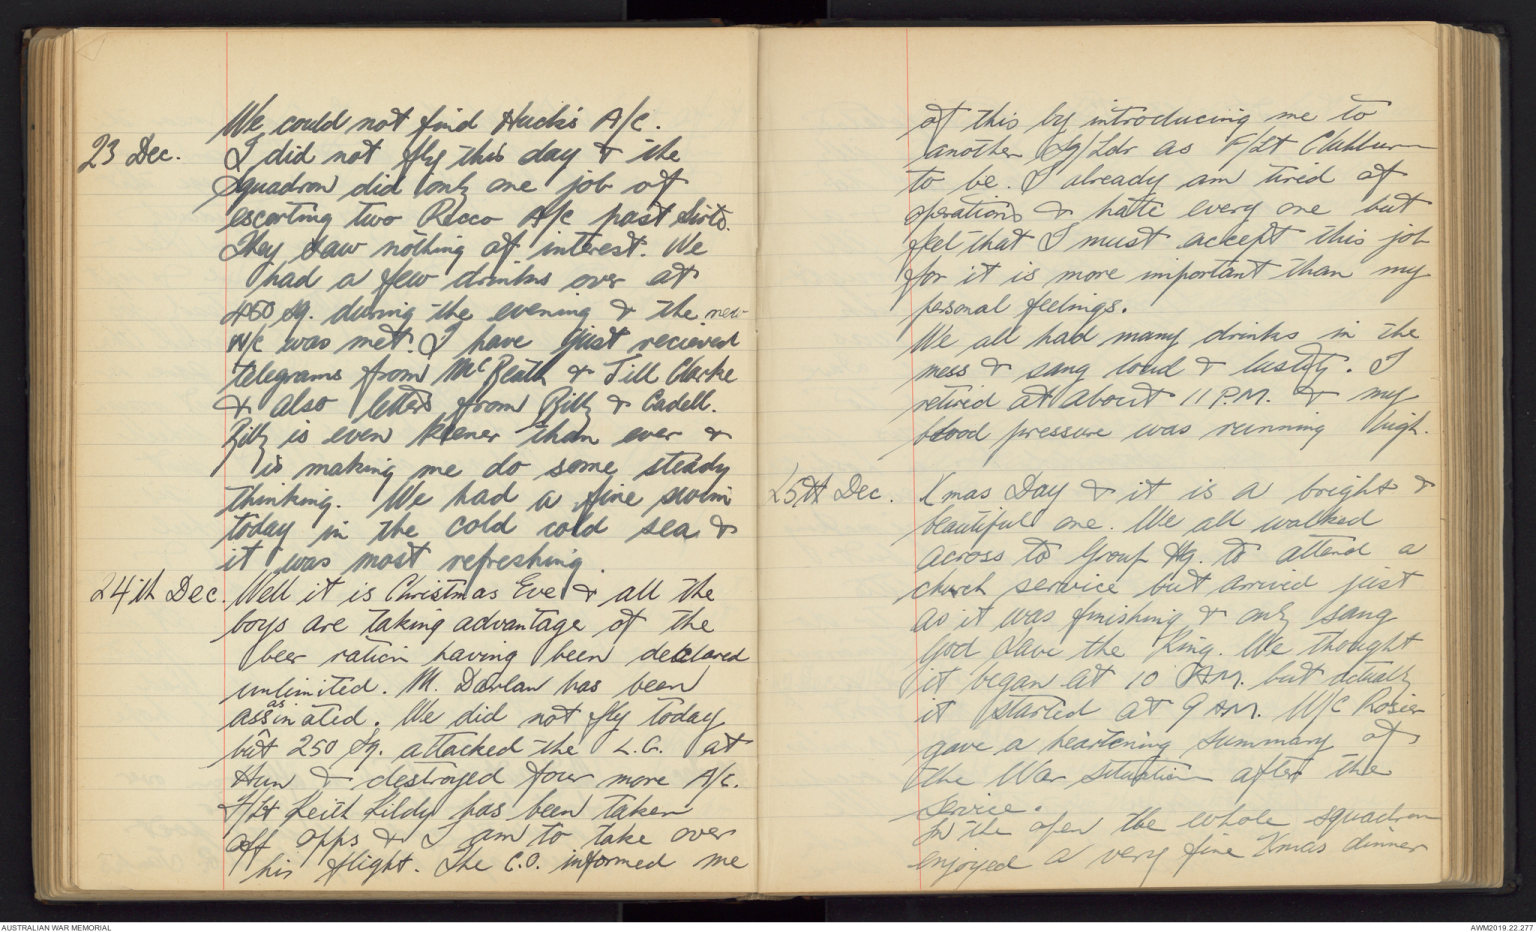 We could not find Huck's A/C.
23 Dec. I did not fly this day & the
squadron did only one job of
escorting two Recco A/c past Sirte.
They saw nothing of interest. We
had a few drinks over at
450 Sq. during the evening & the new
W/C was met. I have just recieved
telegrams from McBeath & Jill Clarke
& also letters from Billy & Cadell.
Billy is even keener than ever &
is making me do some steady
thinking. We had a fine swim
today in the cold cold sea &
it was most refreshing.
24th Dec. Well it is Christmas Eve & all the
boys are taking advantage of the
beer ration having been declared
unlimited. M. Darlan has been
assasinated. We did not fly today
but 250 Sq. attacked the L.G. at
Hun & destroyed four more A/c.
F/Lt Keith Kildy has been taken
off opps & I am to take over
his flight. The C.O. informed me
of this by introducing me to
another Sq/Ldr as F/Lt Clabburn
to be. I already am tired of
operations & hate every one but
feel that I must accept this job
for it is more important than my
personal feelings.
We all had many drinks in the
mess & sang loud & lustily. I
retired at about 11 P.M. & my
blood pressure was running high.
25th Dec. Xmas Day & it is a bright &
beautiful one. We all walked
across to Group Hq. to attend a
church service but arrived just
as it was finishing & only sang
God Save the King. We thought
it began at 10 A.M. but actually
it started at 9 AM. W/C Rosier
gave a heartening summary of
the War situation after the
service.
In the open the whole squadron
enjoyed a very fine Xmas dinner
AUSTRALIAN WAR MEMORIAL
AWM2019.22.277